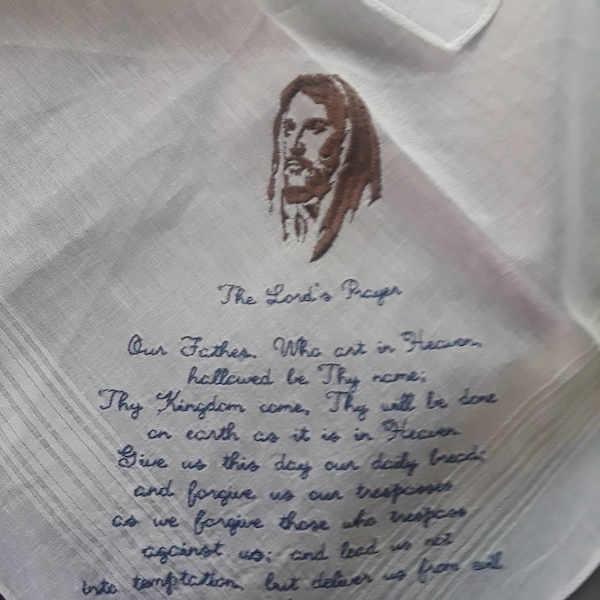 The Lord's Prayer
Our Father, Who art in Heaven,
hallowed be Thy name;
Thy Kingdom come, Thy will be done
on earth as it is in Heaven
Give us this day our daily bread;
and forgive us our trespasses
as we forgive those who trespass
against us; and lead us not
into temptation, but deliver us from evil